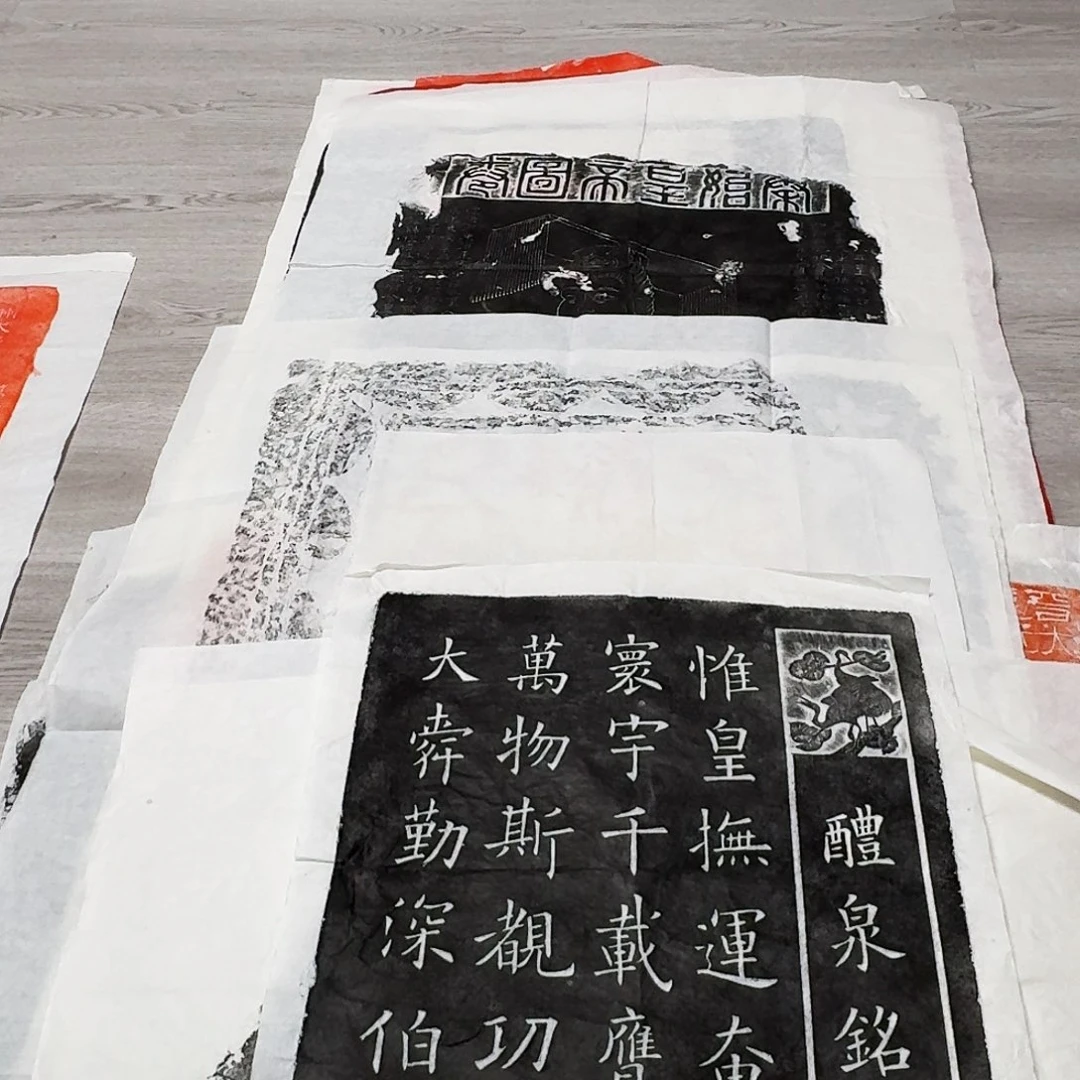 秦始皇帝圖
醴泉銘
惟皇撫運奄
寰宇千載膺
萬物斯覩功
大舜勤深伯